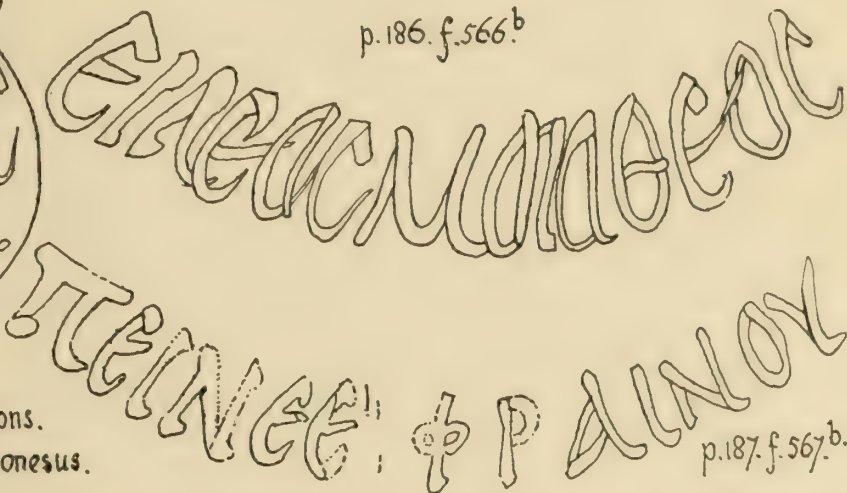 p.186. f.566.b
ЄΙΛЄΑCΜΑΠΑΘЄΟC
ΠЄΙΝЄЄ ΦΡΑΙΝΟΥ
ons.
onesus.
p.187. f.567.b.